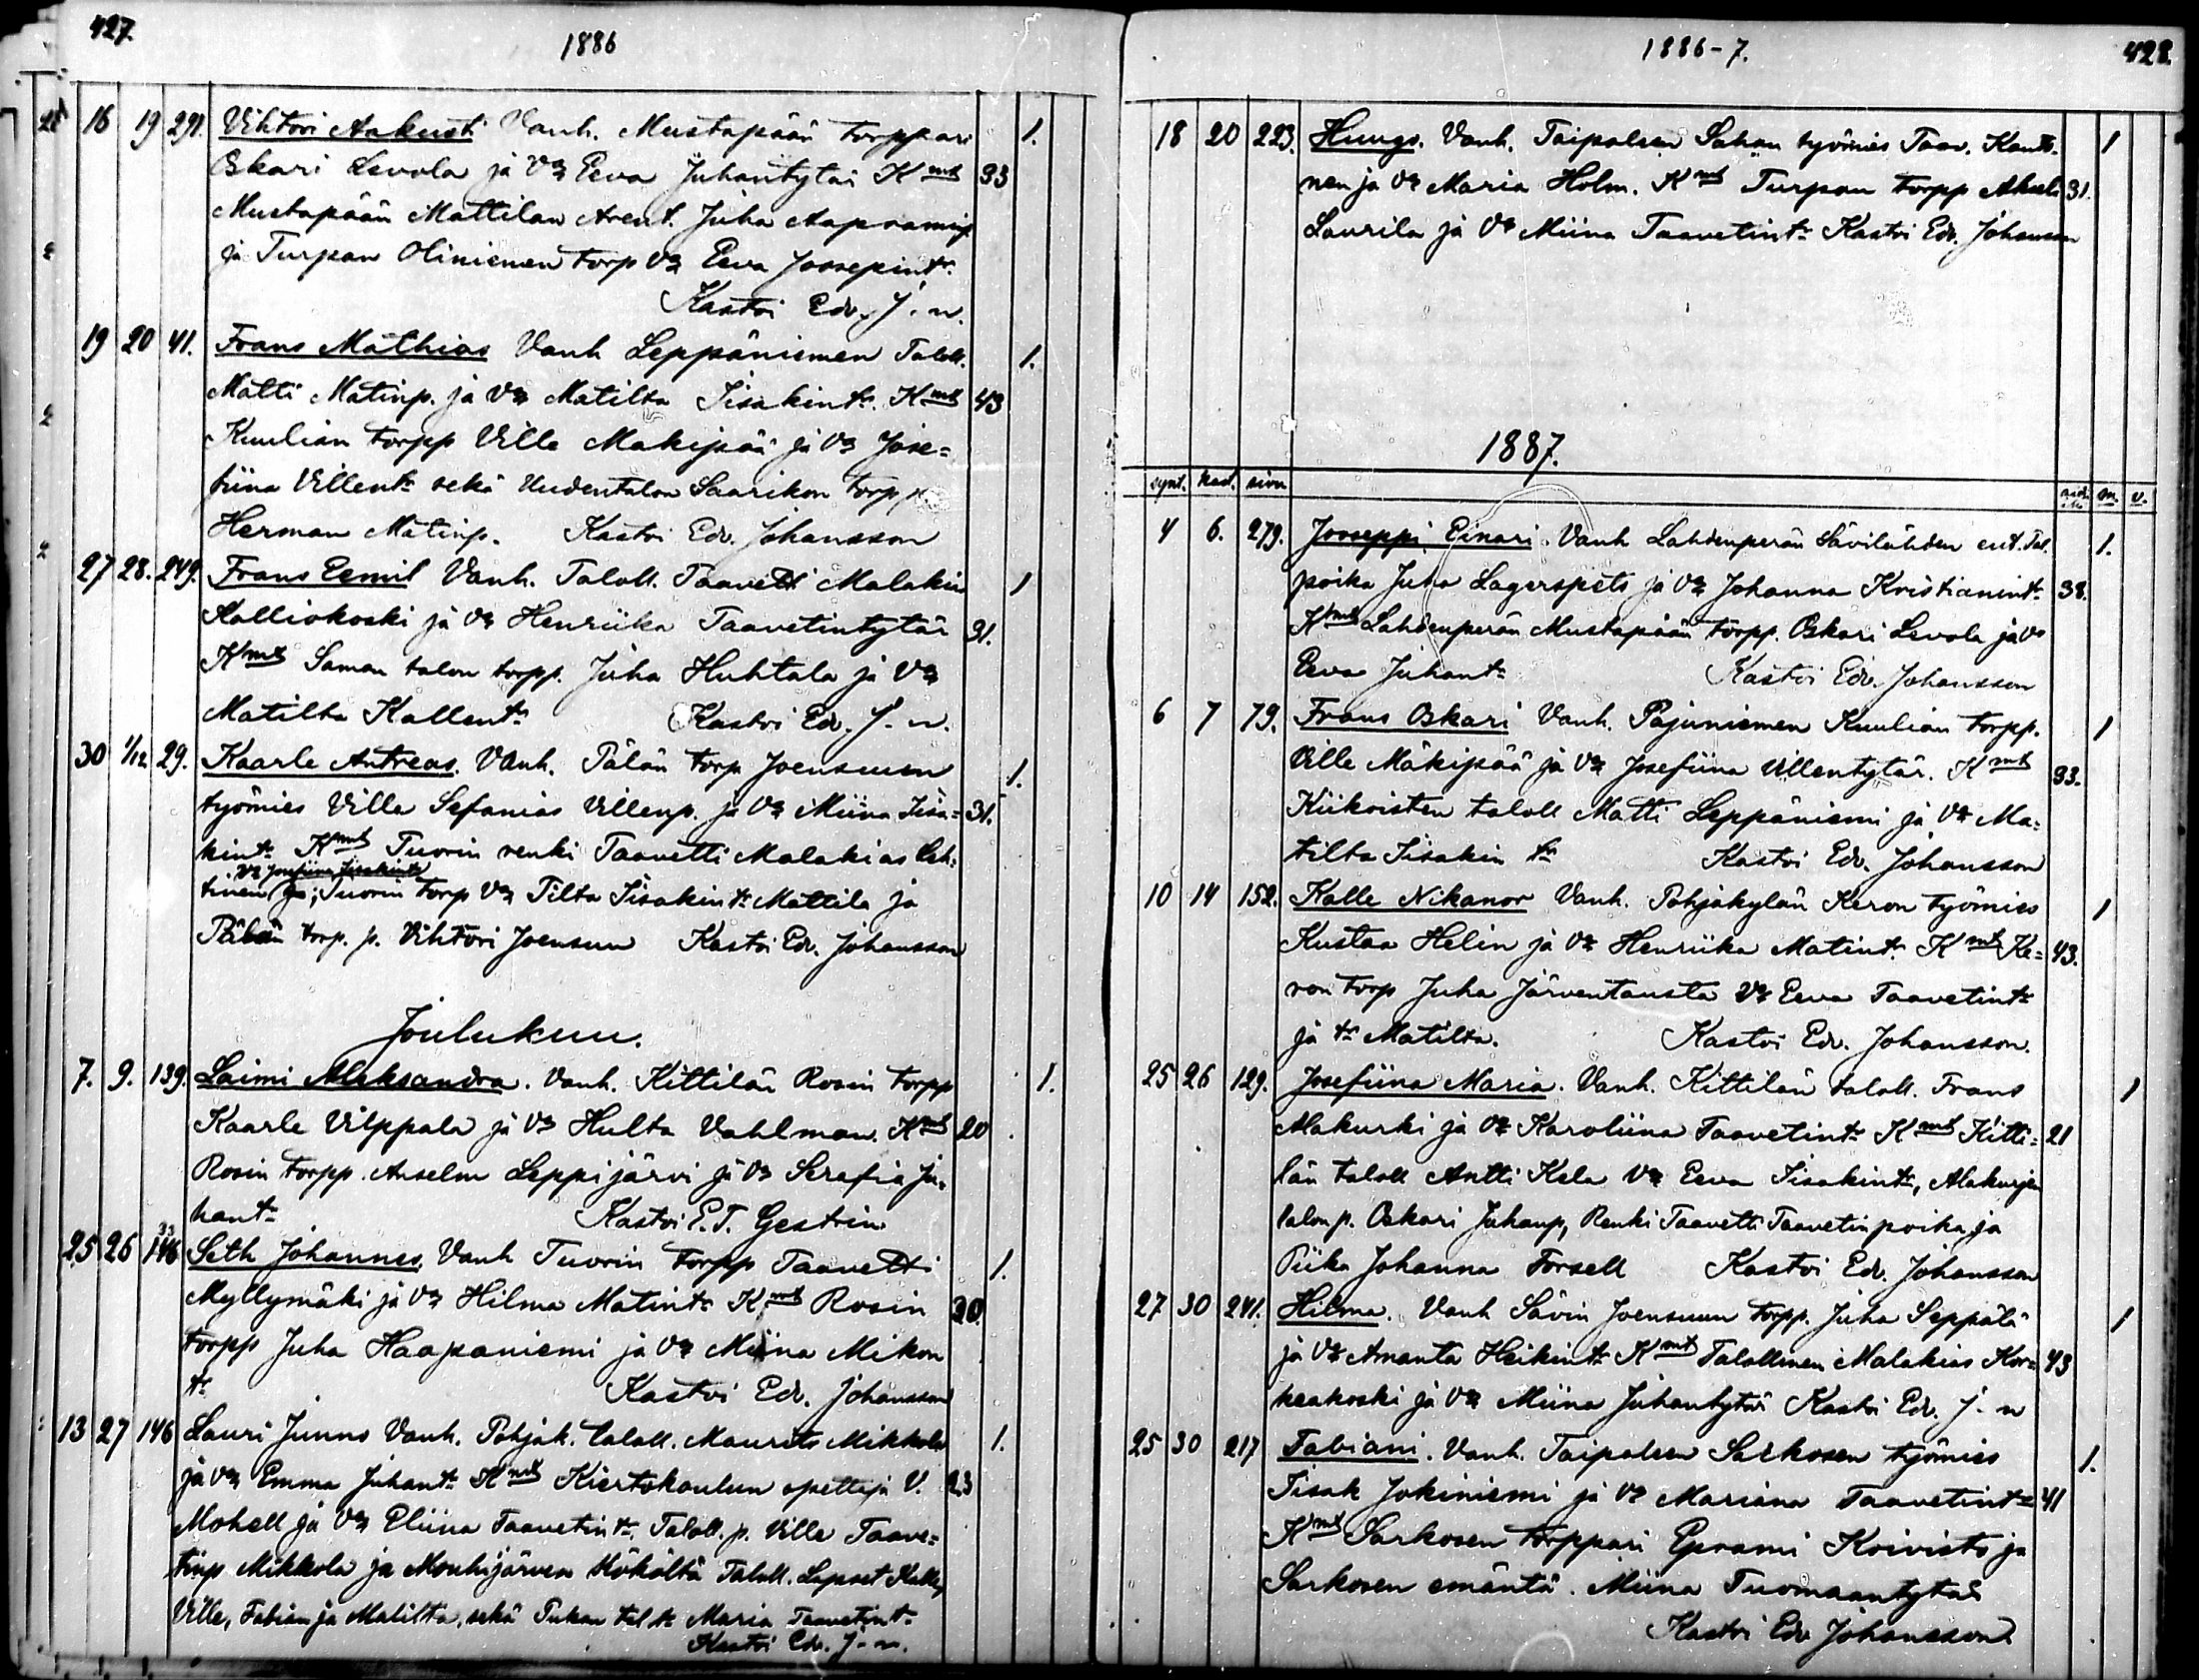 427.
1886
16 19 291. Vihtori Aakusti Vanh. Mustapään torppari 1.
Oskari Levola ja Vo Eeva Juhantytär Kmt 33
Mustapään Mattilan Arent. Juha Aapramip.
ja Turpan Oliniemen torp Vo Eeva Joosepint.
Kastoi Edv. J. n.
19 20 41. Frans Mathias Vanh Leppäniemen Taloll. 1.
Matti Matinp. ja Vo Matilta Iisakint. Kmt 43
Kuulian torpp Ville Makipää ja Vo Jose=
fiina Villent. sekä Uudentalon Saarikon torp p.
Herman Matinp. Kastoi Edv. Johansson
27 28. 249. Frans Eemil Vanh. Taloll. Taavetti Malakias 1
Kalliokoski ja Vo Henriika Taavetintytär 31.
Kmt Saman talon torpp. Juha Huhtala ja Vo
Matilta Kallent. Kastoi Edv. J. n.
30 1/12 29. Kaarle Antreas. Vanh. Pälän torp Joensuun 1.
työmies Ville Sefanias Villenp. ja Vo Miina Iisa= 31.
kint. Kmt Tuorin renki Taavetti Malakias Leh=
Vo Josefiina Iisakint.
tinen ja; Tuorin torp Vo Tilta Iisakint. Mattila ja
Pälän torp. p. Vihtori Joensuu Kastoi Edv. Johansson
Joulukuu.
7. 9. 139. Laimi Aleksandra. Vanh. Kittilän Rosin torpp 1.
Kaarle Vilppala ja Vo Hulta Vahlman. Kmt 20
Rosin torpp. Anselm Leppijärvi ja Vo Serafia Ju=
hant. Kastoi E. T. Gestrin
25 26 146 Seth Johannes. Vanh Tuorin torpp Taavetti 1.
Myllymäki ja Vo Hilma Matint. Kmt Rosin 30.
torpp Juha Haapaniemi ja Vo Miina Mikon
tr. Kastoi Edv. Johansson
13 27 146 Lauri Junno Vanh. Pohjak. taloll. Maurits Mikkola 1.
ja Vo Emma Juhant. Kmt Kiertokoulun opettaja V. 23
Mohell ja Vo Eliina Taavetint. Taloll. p. Ville Taave=
tinp Mikkola ja Mouhijärven Hökältä Taloll. Lapset Kalle,
Ville, Fabian ja Matilta, sekä Pukan tal. tr. Maria Taavetint.
Kastoi Edv. J-n.
1886-7.
428.
18 20 223. Huugo. Vanh. Taipaleen Sahan työmies Taav. Kant- 1
nen ja Vo Maria Holm. Kmt Turpan torpp Akseli 31.
Laurila ja Vo Miina Taavetint. Kastoi Edv. Johansson
1887.
synt. kast. sivu m. v.
4 6. 279. Jooseppi Einari. Vanh Lahdenperän Sävilahden ent. Tal. 1.
poika Juha Lagerspets ja Vo Johanna Kristianint. 38.
Kmt Lahdenperän Mustapään torpp. Oskari Levola ja Vo
Eeva Juhant. Kastoi Edv. Johansson
6 7 79. Frans Oskari Vanh. Pajuniemen Kuulian torpp. 1
Ville Mäkipää ja Vo Josefiina Villentytär. Kmt 33.
Kiikoisten taloll Matti Leppäniemi ja Vo Ma=
tilta Iisakin tr. Kastoi Edv. Johansson
10 14 152. Kalle Nikanor Vanh. Pohjakylän Keron työmies 1
Kustaa Helin ja Vo Henriika Matint. Kmt Ke= 43.
ron torp Juha Järventausta Vo Eeva Taavetint.
ja tr. Matilta. Kastoi Edv. Johansson.
25 26 129. Josefiina Maria. Vanh. Kittilän taloll. Frans 1
Alakurki ja Vo Karoliina Taavetint. Kmt Kitti= 21
län taloll Antti Kela Vo Eeva Iisakint., Alakurjen
talon p. Oskari Juhanp, Renki Taavetti Taavetinpoika ja
Piika Johanna Forsell Kastoi Edv. Johansson
27 30 241. Hilma. Vanh Sävin Joensuun torpp. Juha Seppälä 1
ja Vo Amanta Heikint. Kmt Talollinen Malakias Kor= 43
keakoski ja Vo Miina Juhantytär Kastoi Edv. J-n
25 30 217 Fabiani. Vanh. Taipaleen Sarkosen työmies 1.
Iisak Jokiniemi ja Vo Mariana Taavetint. 41
Kmt Sarkosen torppari Eprami Koivisto ja
Sarkosen emäntä. Miina Tuomaantytär
Kastoi Edv Johansson